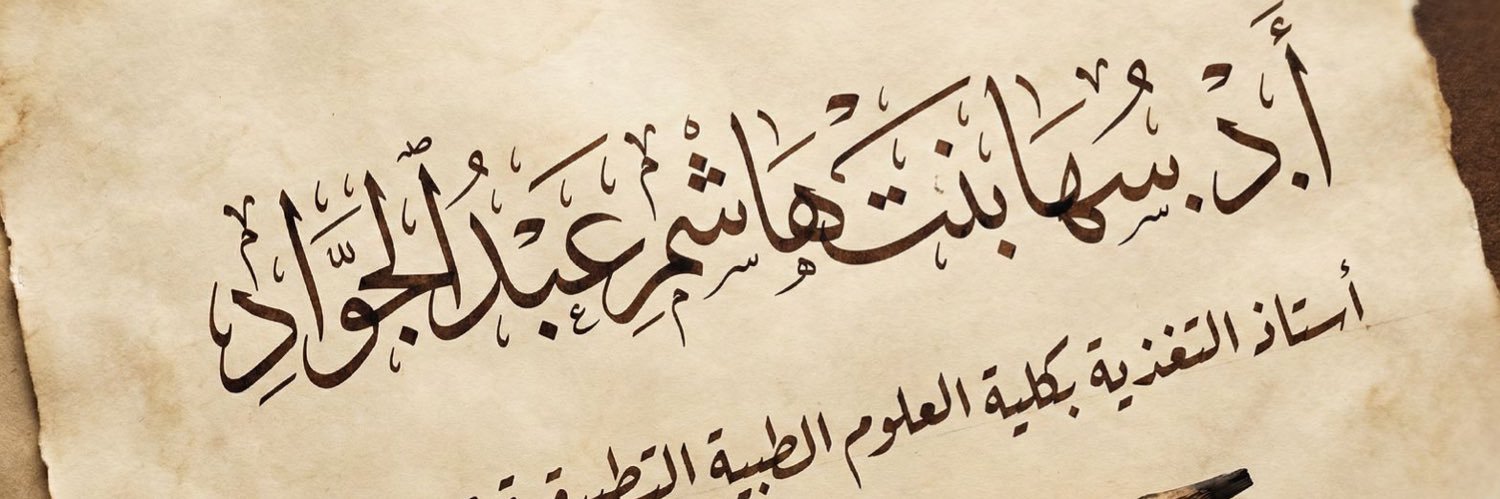 أ.د. سُهَا بنت هَاشْمِ عَبْدُ ٱلجَوَّادِ
أستاذ التغذية بكلية العلوم الطبية التطبيقية